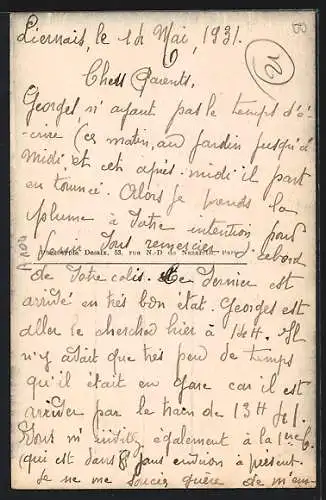 Liernais, le 14 Mai, 1931.
B
21
Chers Parents,
Georges, n'ayant pas le temps d'é-
crire (ce matin, au jardin jusqu'à
Midi et cet après-midi il part
en tournée. Alors je prends la
plume à Votre intention pour
Vous remercier d'abord
Desaix, 53, rue N.-D. de Nazareth, Paris
de Votre colis. Ce dernier est
arrivé en très bon état. Georges est
aller le chercher hier à 14H. Il
n'y avait que très peu de temps
qu'il était en gare car il est
arriver par le train de 13H
Vous m'invitez également à la 1re C.
qui est dans 8 jours environ à présent.
Je ne me soucie guère de m'en